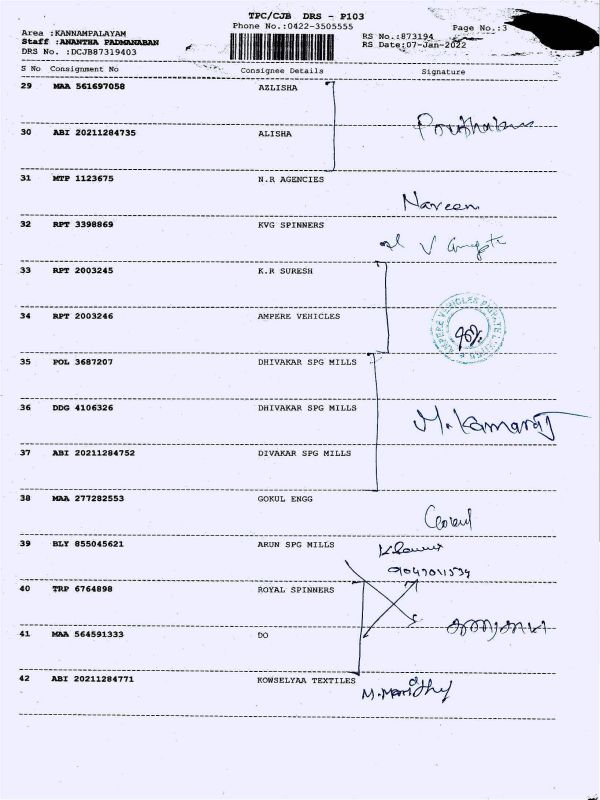 TPC/CJB DRS - P103
Phone No.:0422-3505555
Page No.:3
Area :KANNAMPALAYAM
Staff :ANANTHA PADMANABAN
DRS No. :DCJB87319403
RS No.:873194
RS Date:07-Jan-2022
S No Consignment No Consignee Details Signature
29 MAA 561697058 AZLISHA
30 ABI 20211284735 ALISHA
31 MTP 1123675 N.R AGENCIES
Naveen
32 RPT 3398869 KVG SPINNERS
33 RPT 2003245 K.R SURESH
34 RPT 2003246 AMPERE VEHICLES
35 POL 3687207 DHIVAKAR SPG MILLS
36 DDG 4106326 DHIVAKAR SPG MILLS
M.Kamaraj
37 ABI 20211284752 DIVAKAR SPG MILLS
38 MAA 277282553 GOKUL ENGG
Gokul
39 BLY 855045621 ARUN SPG MILLS
40 TRP 6764898 ROYAL SPINNERS
41 MAA 564591333 DO
42 ABI 20211284771 KOWSELYAA TEXTILES